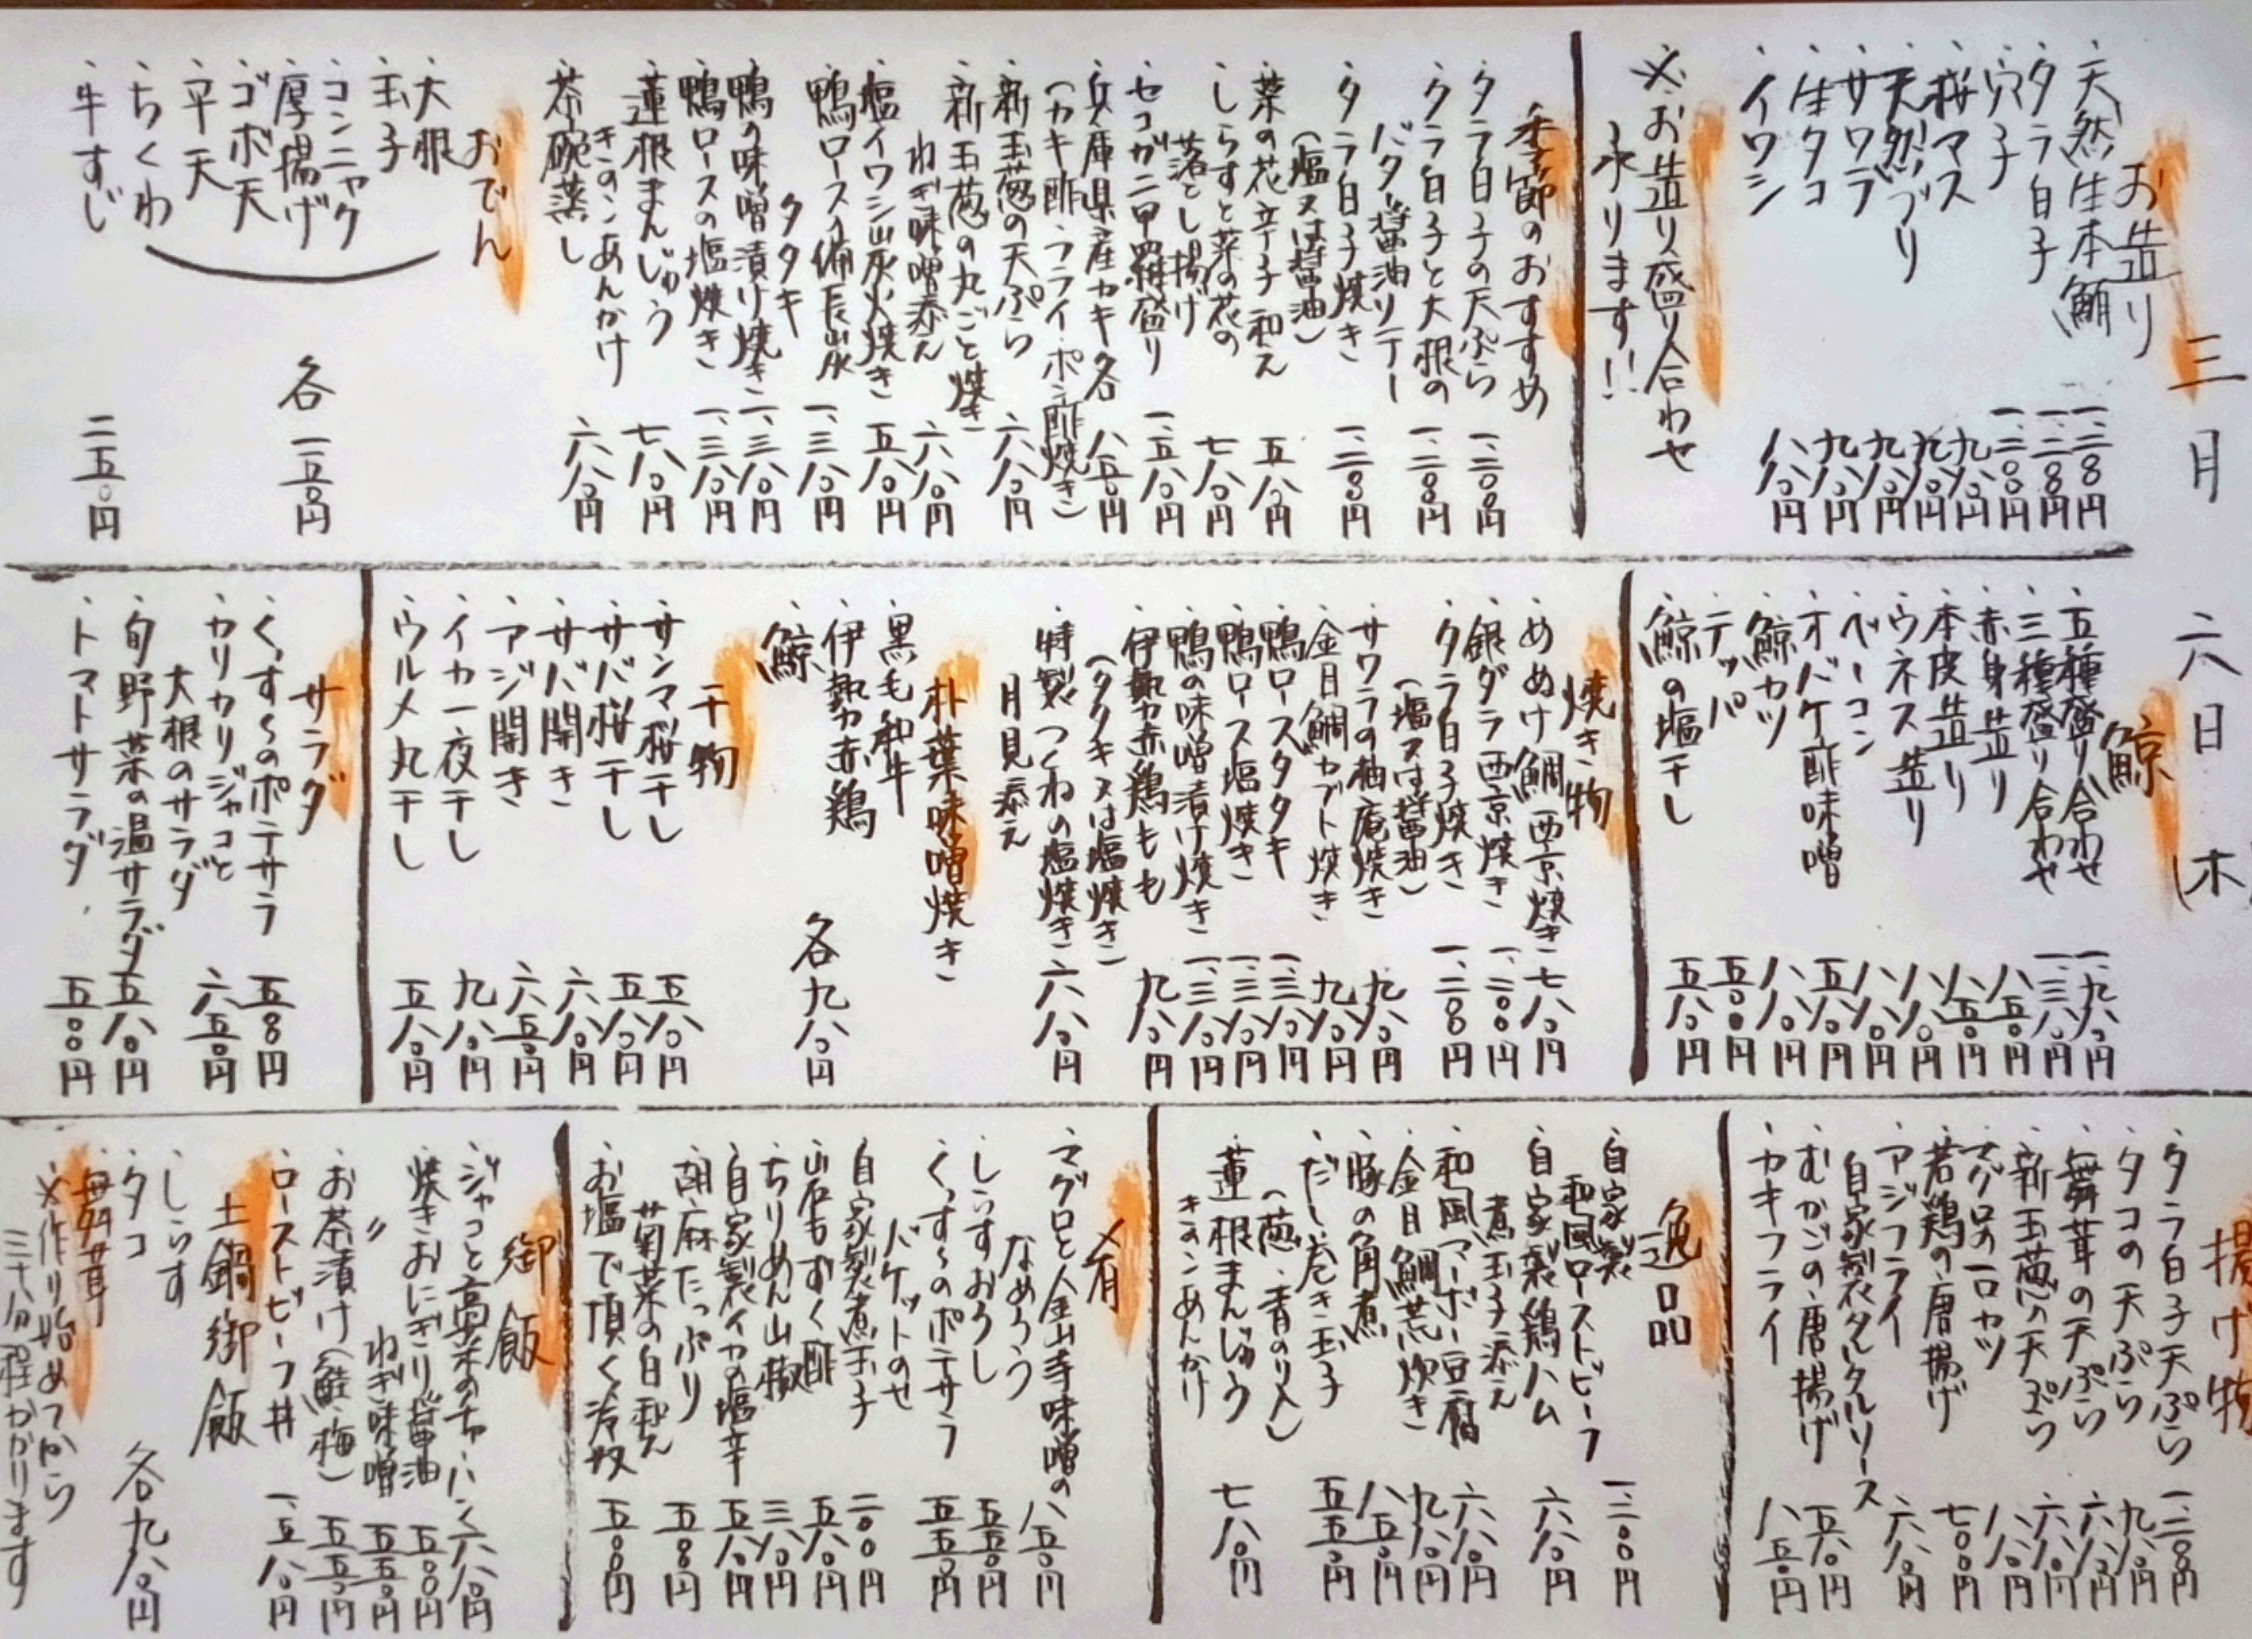 三月 二六日(木)
お造り
・天然生本鮪 一、二八〇円
・タラ白子 一、二八〇円
・穴子 一、二〇〇円
・桜マス 九八〇円
・天然ブリ 九八〇円
・サワラ 九八〇円
・生タコ 九八〇円
・イワシ 八八〇円
※お造り盛り合わせ
承ります!!
季節のおすすめ
・タラ白子の天ぷら 一、二〇〇円
・タラ白子と大根の
バター醤油ソテー 一、二八〇円
・タラ白子焼き
(塩又は醤油) 一、二八〇円
・菜の花辛子和え 五八〇円
・しらすと菜の花の
落とし揚げ 七八〇円
・セコガニ甲羅盛り 一、五八〇円
・兵庫県産カキ各 八五〇円
(カキ酢・フライ・ポン酢焼き)
・新玉葱の天ぷら 六八〇円
・新玉葱の丸ごと焼き
ねぎ味噌添え 六八〇円
・塩イワシ炭火焼き 五八〇円
・鴨ロース備長炭
タタキ 一、三八〇円
・鴨の味噌漬け焼き 一、三八〇円
・鴨ロースの塩焼き 一、三八〇円
・蓮根まんじゅう
きのこあんかけ 七八〇円
・茶碗蒸し 六八〇円
おでん
・大根
・玉子
・コンニャク
・厚揚げ
・ゴボ天
・平天
・ちくわ
各 一五〇円
・牛すじ 二五〇円
鯨
・五種盛り合わせ 一、九八〇円
・三種盛り合わせ 一、三八〇円
・赤身造り 八五〇円
・本皮造り 八五〇円
・ウネス造り 八八〇円
・ベーコン 八八〇円
・オバケ酢味噌 五八〇円
・鯨カツ 八八〇円
・テッパ 五〇〇円
・鯨の塩干し 五八〇円
焼き物
・めぬけ鯛西京焼き 七八〇円
・銀ダラ西京焼き 一、二〇〇円
・タラ白子焼き
(塩又は醤油) 一、二八〇円
・サワラの柚庵焼き 九八〇円
・金目鯛カブト焼き 九八〇円
・鴨ロースタタキ 一、三八〇円
・鴨ロース塩焼き 一、三八〇円
・鴨の味噌漬け焼き 一、三八〇円
・伊勢赤鶏もも
(タタキ又は塩焼き) 九八〇円
・特製つくねの塩焼き
月見添え 六八〇円
朴葉味噌焼き
・黒毛和牛
・伊勢赤鶏
・鯨
各九八〇円
干物
・サンマ桜干し 五八〇円
・サバ桜干し 五八〇円
・サバ開き 六八〇円
・アジ開き 六五〇円
・イカ一夜干し 九八〇円
・ウルメ丸干し 五八〇円
サラダ
・くっす〜のポテサラ 五五〇円
・カリカリジャコと
大根のサラダ 六五〇円
・旬野菜の温サラダ 五八〇円
・トマトサラダ 五〇〇円
揚げ物
・タラ白子天ぷら 一、二〇〇円
・タコの天ぷら 九八〇円
・舞茸の天ぷら 六八〇円
・新玉葱の天ぷら 六八〇円
・マグロの一口カツ 八八〇円
・若鶏の唐揚げ 七〇〇円
・アジフライ
自家製タルタルソース 六八〇円
・むかごの唐揚げ 五八〇円
・カキフライ 八五〇円
逸品
・自家製
和風ローストビーフ 一、二〇〇円
・自家製鶏ハム
煮玉子添え 六八〇円
・和風マーボー豆腐 六八〇円
・金目鯛荒炊き 九八〇円
・豚の角煮 八五〇円
・だし巻き玉子
(葱・青のり入) 五五〇円
・蓮根まんじゅう
きのこあんかけ 七八〇円
〆肴
・マグロと金山寺味噌の
なめろう 八五〇円
・しらすおろし 五五〇円
・くっす〜のポテサラ
バケットのせ 五五〇円
・自家製煮玉子 二〇〇円
・岩もずく酢 五八〇円
・ちりめん山椒 三八〇円
・自家製イカの塩辛 五八〇円
・胡麻たっぷり
菊菜の白和え 五八〇円
・お塩で頂く冷奴 五〇〇円
御飯
・ジャコと高菜のチャーハン 六八〇円
・焼きおにぎり醤油 五〇〇円
・〃 ねぎ味噌 五五〇円
・お茶漬け(鮭・梅) 五五〇円
・ローストビーフ丼 一、五八〇円
土鍋御飯
・しらす
・タコ
・舞茸
各九八〇円
※作り始めてから
三十分程かかります